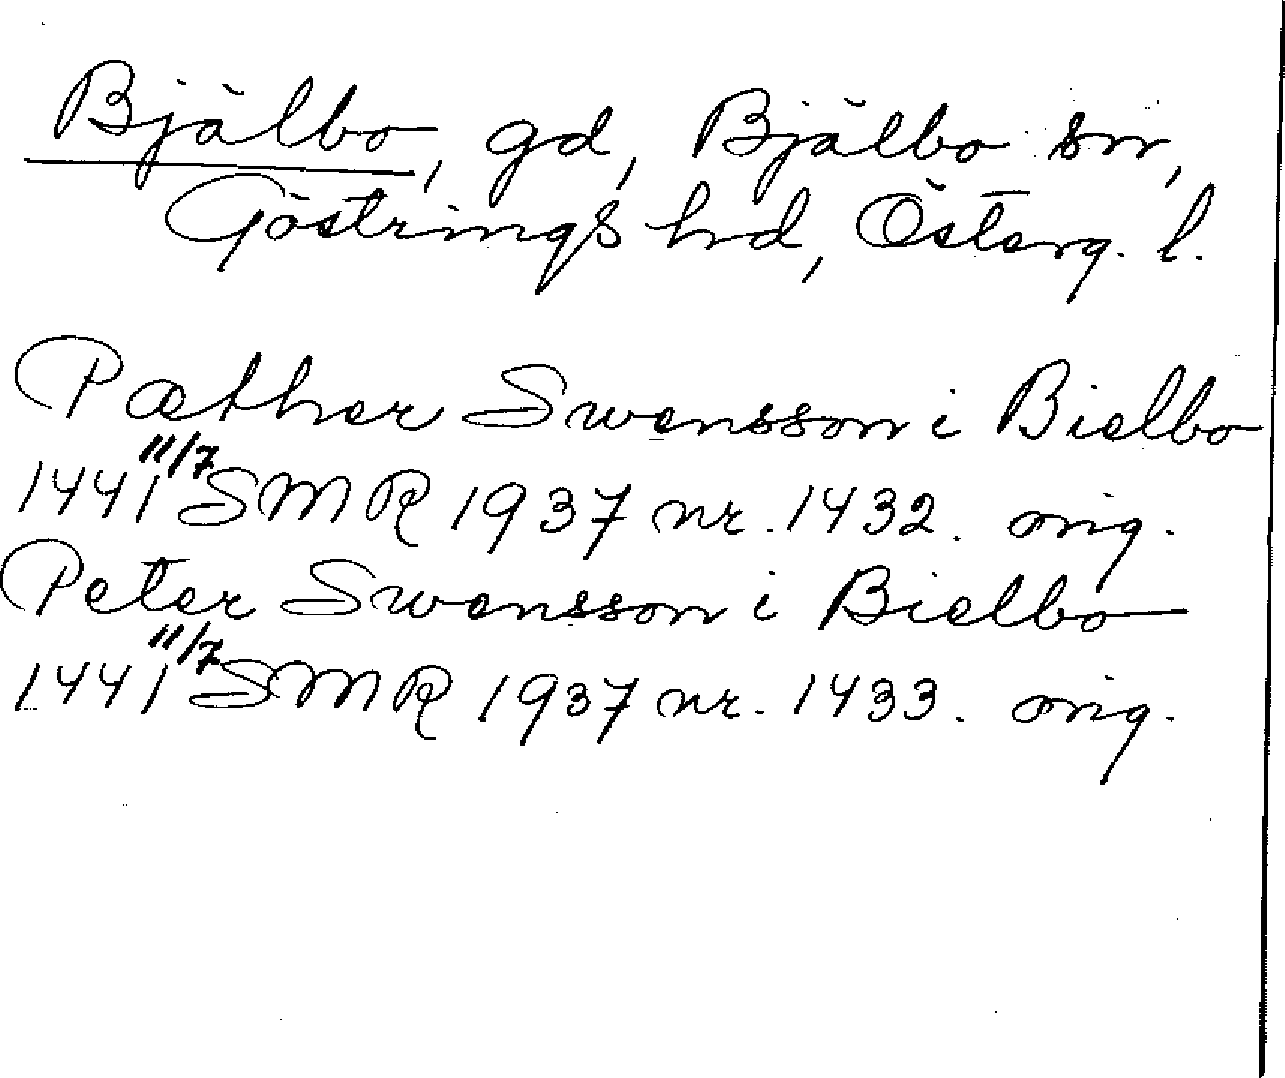 Bjälbo, gd, Bjälbo sn,
Göstrings hd, Österg. l.
Pæther Swensson i Bielbo
1441 11/7 SMR 1937 nr. 1432. orig.
Peter Swensson i Bielbo
1441 11/7 SMR 1937 nr. 1433. orig.